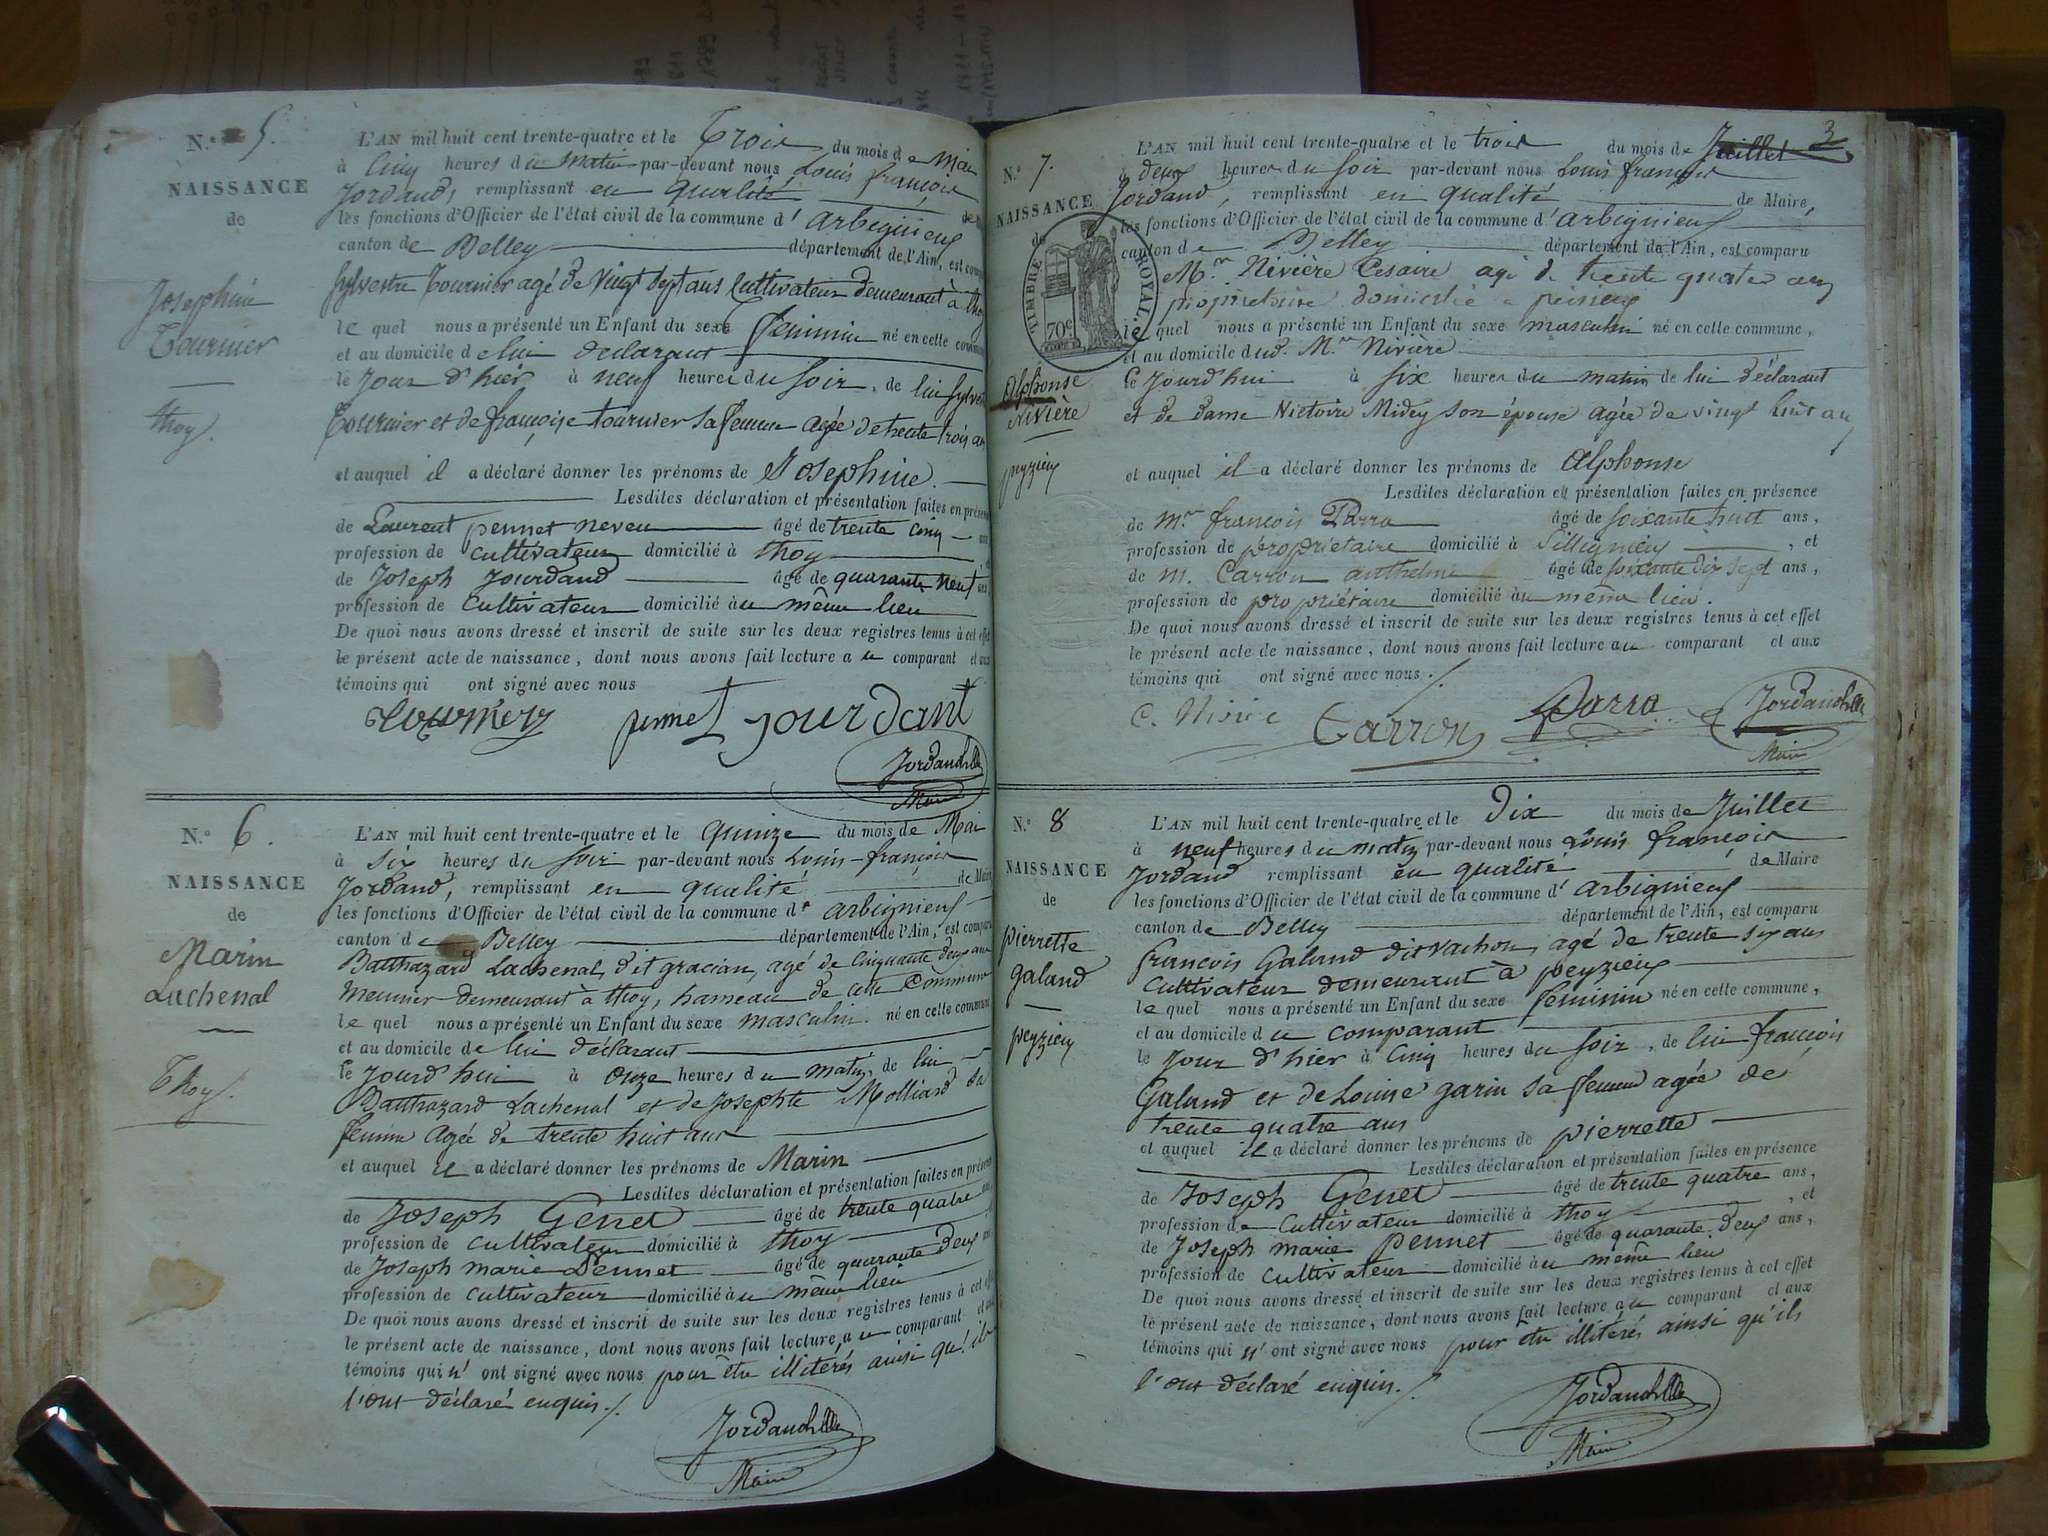 N.° 5.
NAISSANCE
de
Josephine
Tournier
thoy.
L'AN mil huit cent trente-quatre et le Trois du mois de Mai
à Cinq heures du matin par-devant nous Louis françois
Jordand, remplissant en qualité
les fonctions d'Officier de l'état civil de la commune d' arbignieu
canton de Belley département de l'Ain, est comp
Sylvestre Tournier agé de Vingt Sept ans Cultivateur demeurant à thoy
le quel nous a présenté un Enfant du sexe feminin né en cette commune
et au domicile de lui déclarant
le Jour d'hier à neuf heures du Soir, de lui Sylvest
Tournier et de françoise tournier sa femme agée de trente trois an
et auquel il a déclaré donner les prénoms de Josephine.
Lesdites déclaration et présentation faites en présen
de Laurent pennet neveu âgé de trente cinq
profession de cultivateur domicilié à thoy
de Joseph Jourdand âgé de quarante neuf
profession de cultivateur domicilié au même lieu
De quoi nous avons dressé et inscrit de suite sur les deux registres tenus à cet effet
le présent acte de naissance, dont nous avons fait lecture au comparant et aux
témoins qui ont signé avec nous
pennet Jourdant
Maire
N.° 6.
NAISSANCE
de
Marin
Lachenal
Thoy.
L'AN mil huit cent trente-quatre et le quinze du mois de Mai
à Six heures du Soir par-devant nous Louis-françois
Jordand, remplissant en qualité de Maire
les fonctions d'Officier de l'état civil de la commune d' arbignieu
canton de Belley département de l'Ain, est comparu
Balthazard Lachenal dit gracian, agé de Cinquante deux ans
Meunier demeurant à thoy, hameau de cette Commune
le quel nous a présenté un Enfant du sexe masculin né en cette commune
et au domicile de lui déclarant
le Jourd'hui à onze heures du matin, de lui
Balthazard Lachenal et de Josephte Molliard sa
femme agée de trente huit ans
et auquel il a déclaré donner les prénoms de Marin
Lesdites déclaration et présentation faites en présen
de Joseph Genet âgé de trente quatre
profession de cultivateur domicilié à thoy
de Joseph marie Pennet âgé de quarante deux
profession de cultivateur domicilié au même lieu
De quoi nous avons dressé et inscrit de suite sur les deux registres tenus à cet effet
le présent acte de naissance, dont nous avons fait lecture, au comparant et
témoins qui n' ont signé avec nous pour être illiterés ainsi qu'ils
l'ont déclaré enquis./.
Maire
3
N.° 7.
NAISSANCE
de
TIMBRE ROYAL.
70c
Alphonse
Nivière
peyzieu
L'AN mil huit cent trente-quatre et le trois du mois de Juillet
à deux heures du Soir par-devant nous Louis françois
Jordand, remplissant en qualité de Maire,
les fonctions d'Officier de l'état civil de la commune d' arbignieu
canton de Belley département de l'Ain, est comparu
Mr. Nivière Cesaire agé de trente quatre ans
propriétaire domicilié a peisieu
le quel nous a présenté un Enfant du sexe masculin né en cette commune,
et au domicile dud. Mr. Nivière
le Jourd'hui à six heures du matin de lui déclarant
et de dame Victoire Midey son épouse agée de vingt huit an
et auquel il a déclaré donner les prénoms de Alphonse
Lesdites déclaration et présentation faites en présence
de Mr. françois Parra âgé de soixante huit ans,
profession de propriétaire domicilié à Sillignieu, et
de M. Carron anthelme âgé de soixante dix sept ans,
profession de propriétaire domicilié au même lieu.
De quoi nous avons dressé et inscrit de suite sur les deux registres tenus à cet effet
le présent acte de naissance, dont nous avons fait lecture au comparant et aux
témoins qui ont signé avec nous./.
C. Nivière Carron Parra
Maire
N.° 8
NAISSANCE
de
pierrette
galand
peyzieu
L'AN mil huit cent trente-quatre et le Dix du mois de Juillet
à neuf heures du matin par-devant nous Louis françois
Jordand remplissant en qualité de Maire
les fonctions d'Officier de l'état civil de la commune d' arbignieu
canton de Belley département de l'Ain, est comparu
françois Galand dit vachon, agé de trente six ans
Cultivateur demeurant à peyzieu
le quel nous a présenté un Enfant du sexe feminin né en cette commune,
et au domicile du comparant
le Jour d'hier à Cinq heures du Soir, de lui françois
Galand et de Louise garin sa femme agée de
trente quatre ans
et auquel il a déclaré donner les prénoms de pierrette
Lesdites déclaration et présentation faites en présence
de Joseph Genet âgé de trente quatre ans,
profession de Cultivateur domicilié à thoy, et
de Joseph marie Pennet âgé de quarante deux ans,
profession de Cultivateur domicilié au même lieu
De quoi nous avons dressé et inscrit de suite sur les deux registres tenus à cet effet
le présent acte de naissance, dont nous avons fait lecture au comparant et aux
témoins qui n' ont signé avec nous pour être illiterés ainsi qu'ils
l'ont déclaré enquis./.
Maire